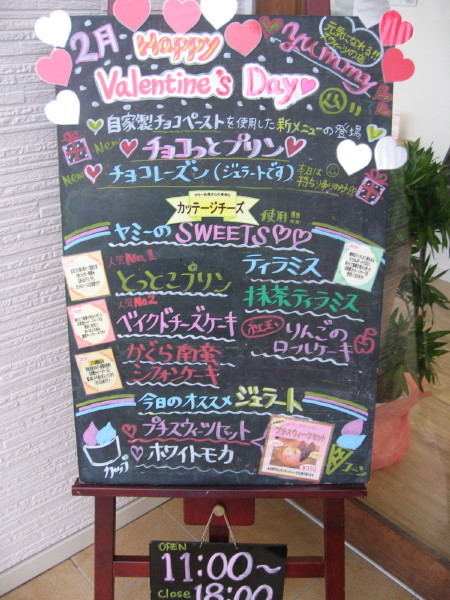 2月 Happy Valentine's Day
元気になれる!!
スイーツの店
yummy
自家製チョコペーストを使用した新メニューの登場
New チョコっとプリン
New チョコレーズン(ジェラートです)
本日は
持ち帰りのみ
カッテージチーズ
使用!!
ヤミーのSWEETS
人気No.1
とっとこプリン
人気No.2
ベイクドチーズケーキ
かぐら南蛮
シフォンケーキ
ティラミス
抹茶ティラミス
紅玉
りんごの
ロールケーキ
今日のオススメ ジェラート
プチスウィーツセット
ホワイトモカ
カップ
プチスウィーツセット
コーン
OPEN
11:00~
Close 18:00